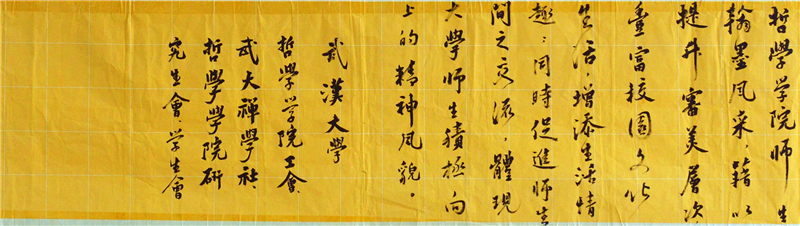 哲學學院師生
翰墨風采，藉以
提升審美層次，
豐富校園文化
生活，增添生活情
趣；同時促進師生
間之交流，體現
大學師生積極向
上的精神風貌。
武漢大學
哲學学院工會、
武大禪學社、
哲學學院研
究生會、學生會